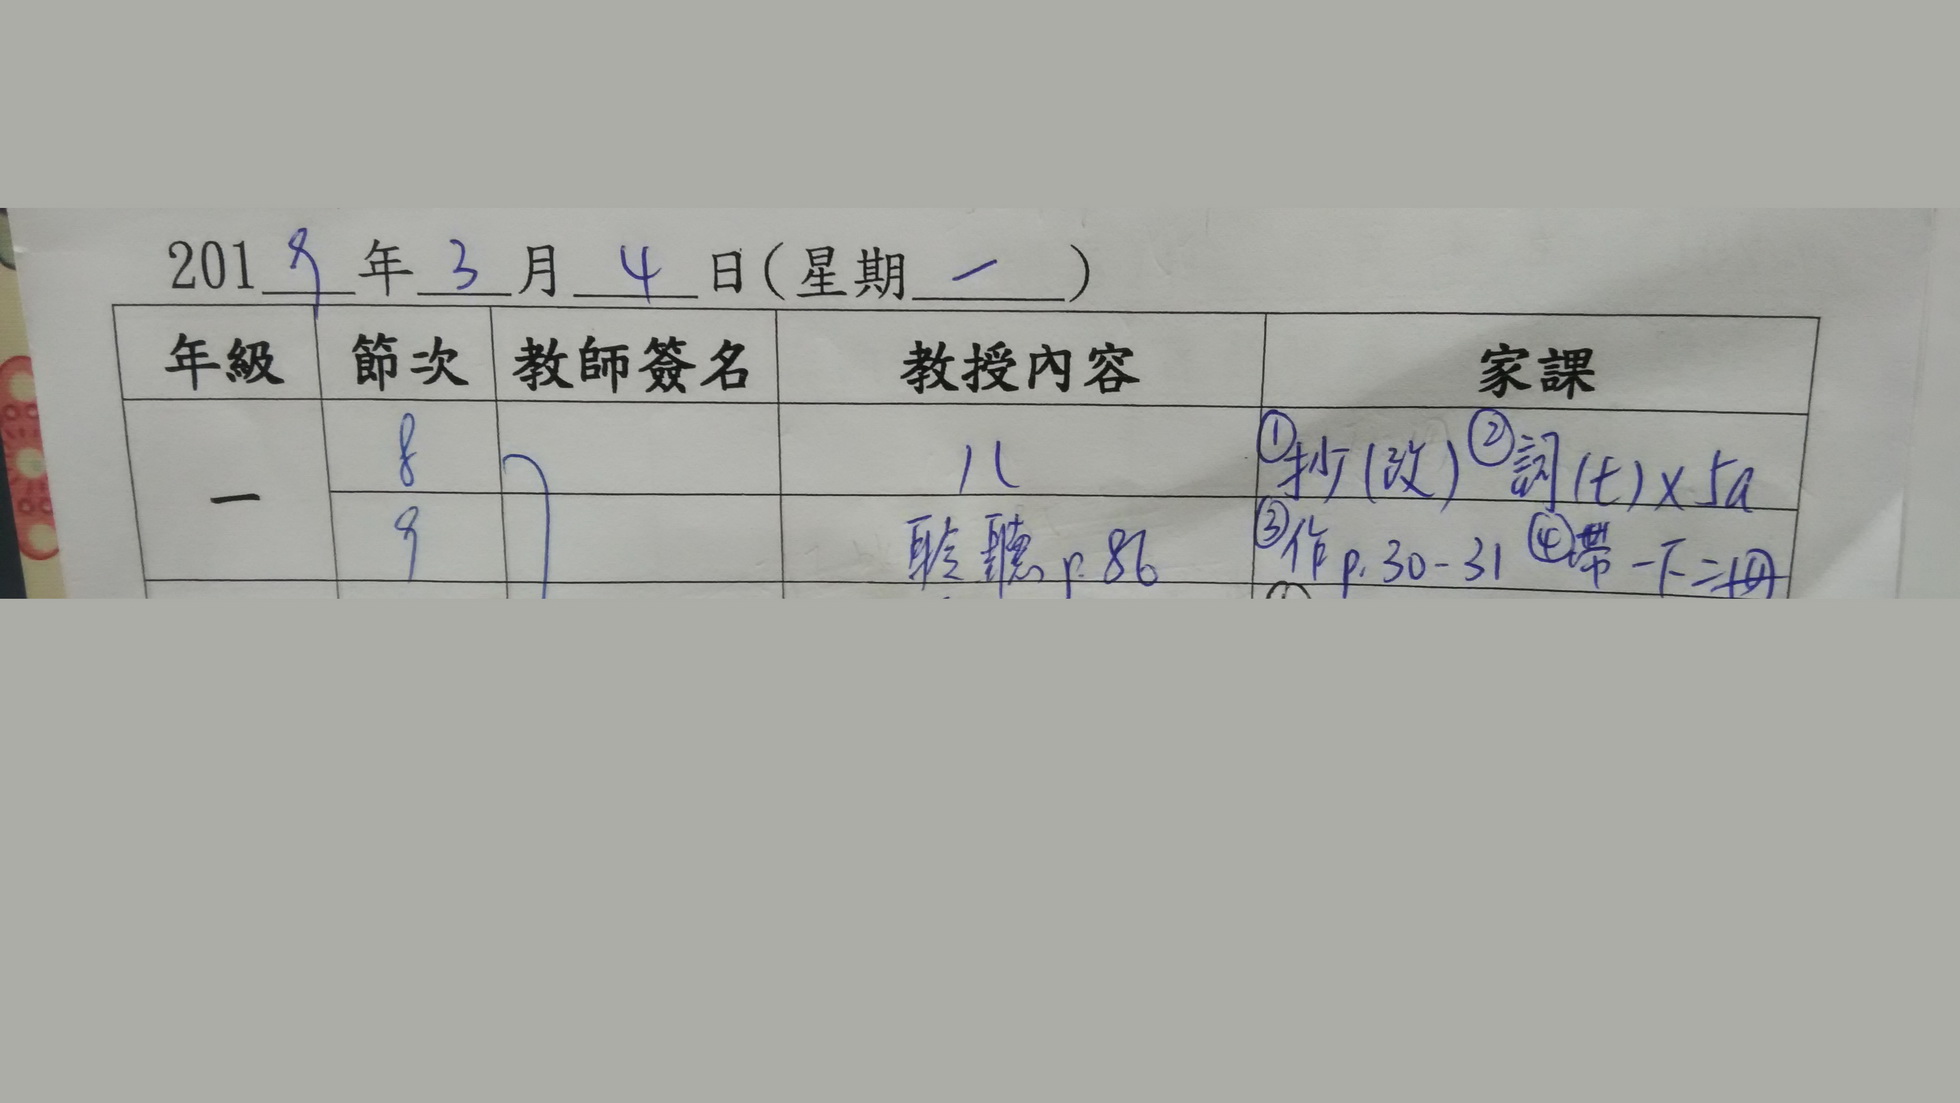 2019年3月4日(星期一)
年級 節次 教師簽名 教授內容 家課
一 8 八 ①抄(改) ②詞(七)x5a
9 聆聽 p.86 ③作p.30-31 ④帶一下二冊